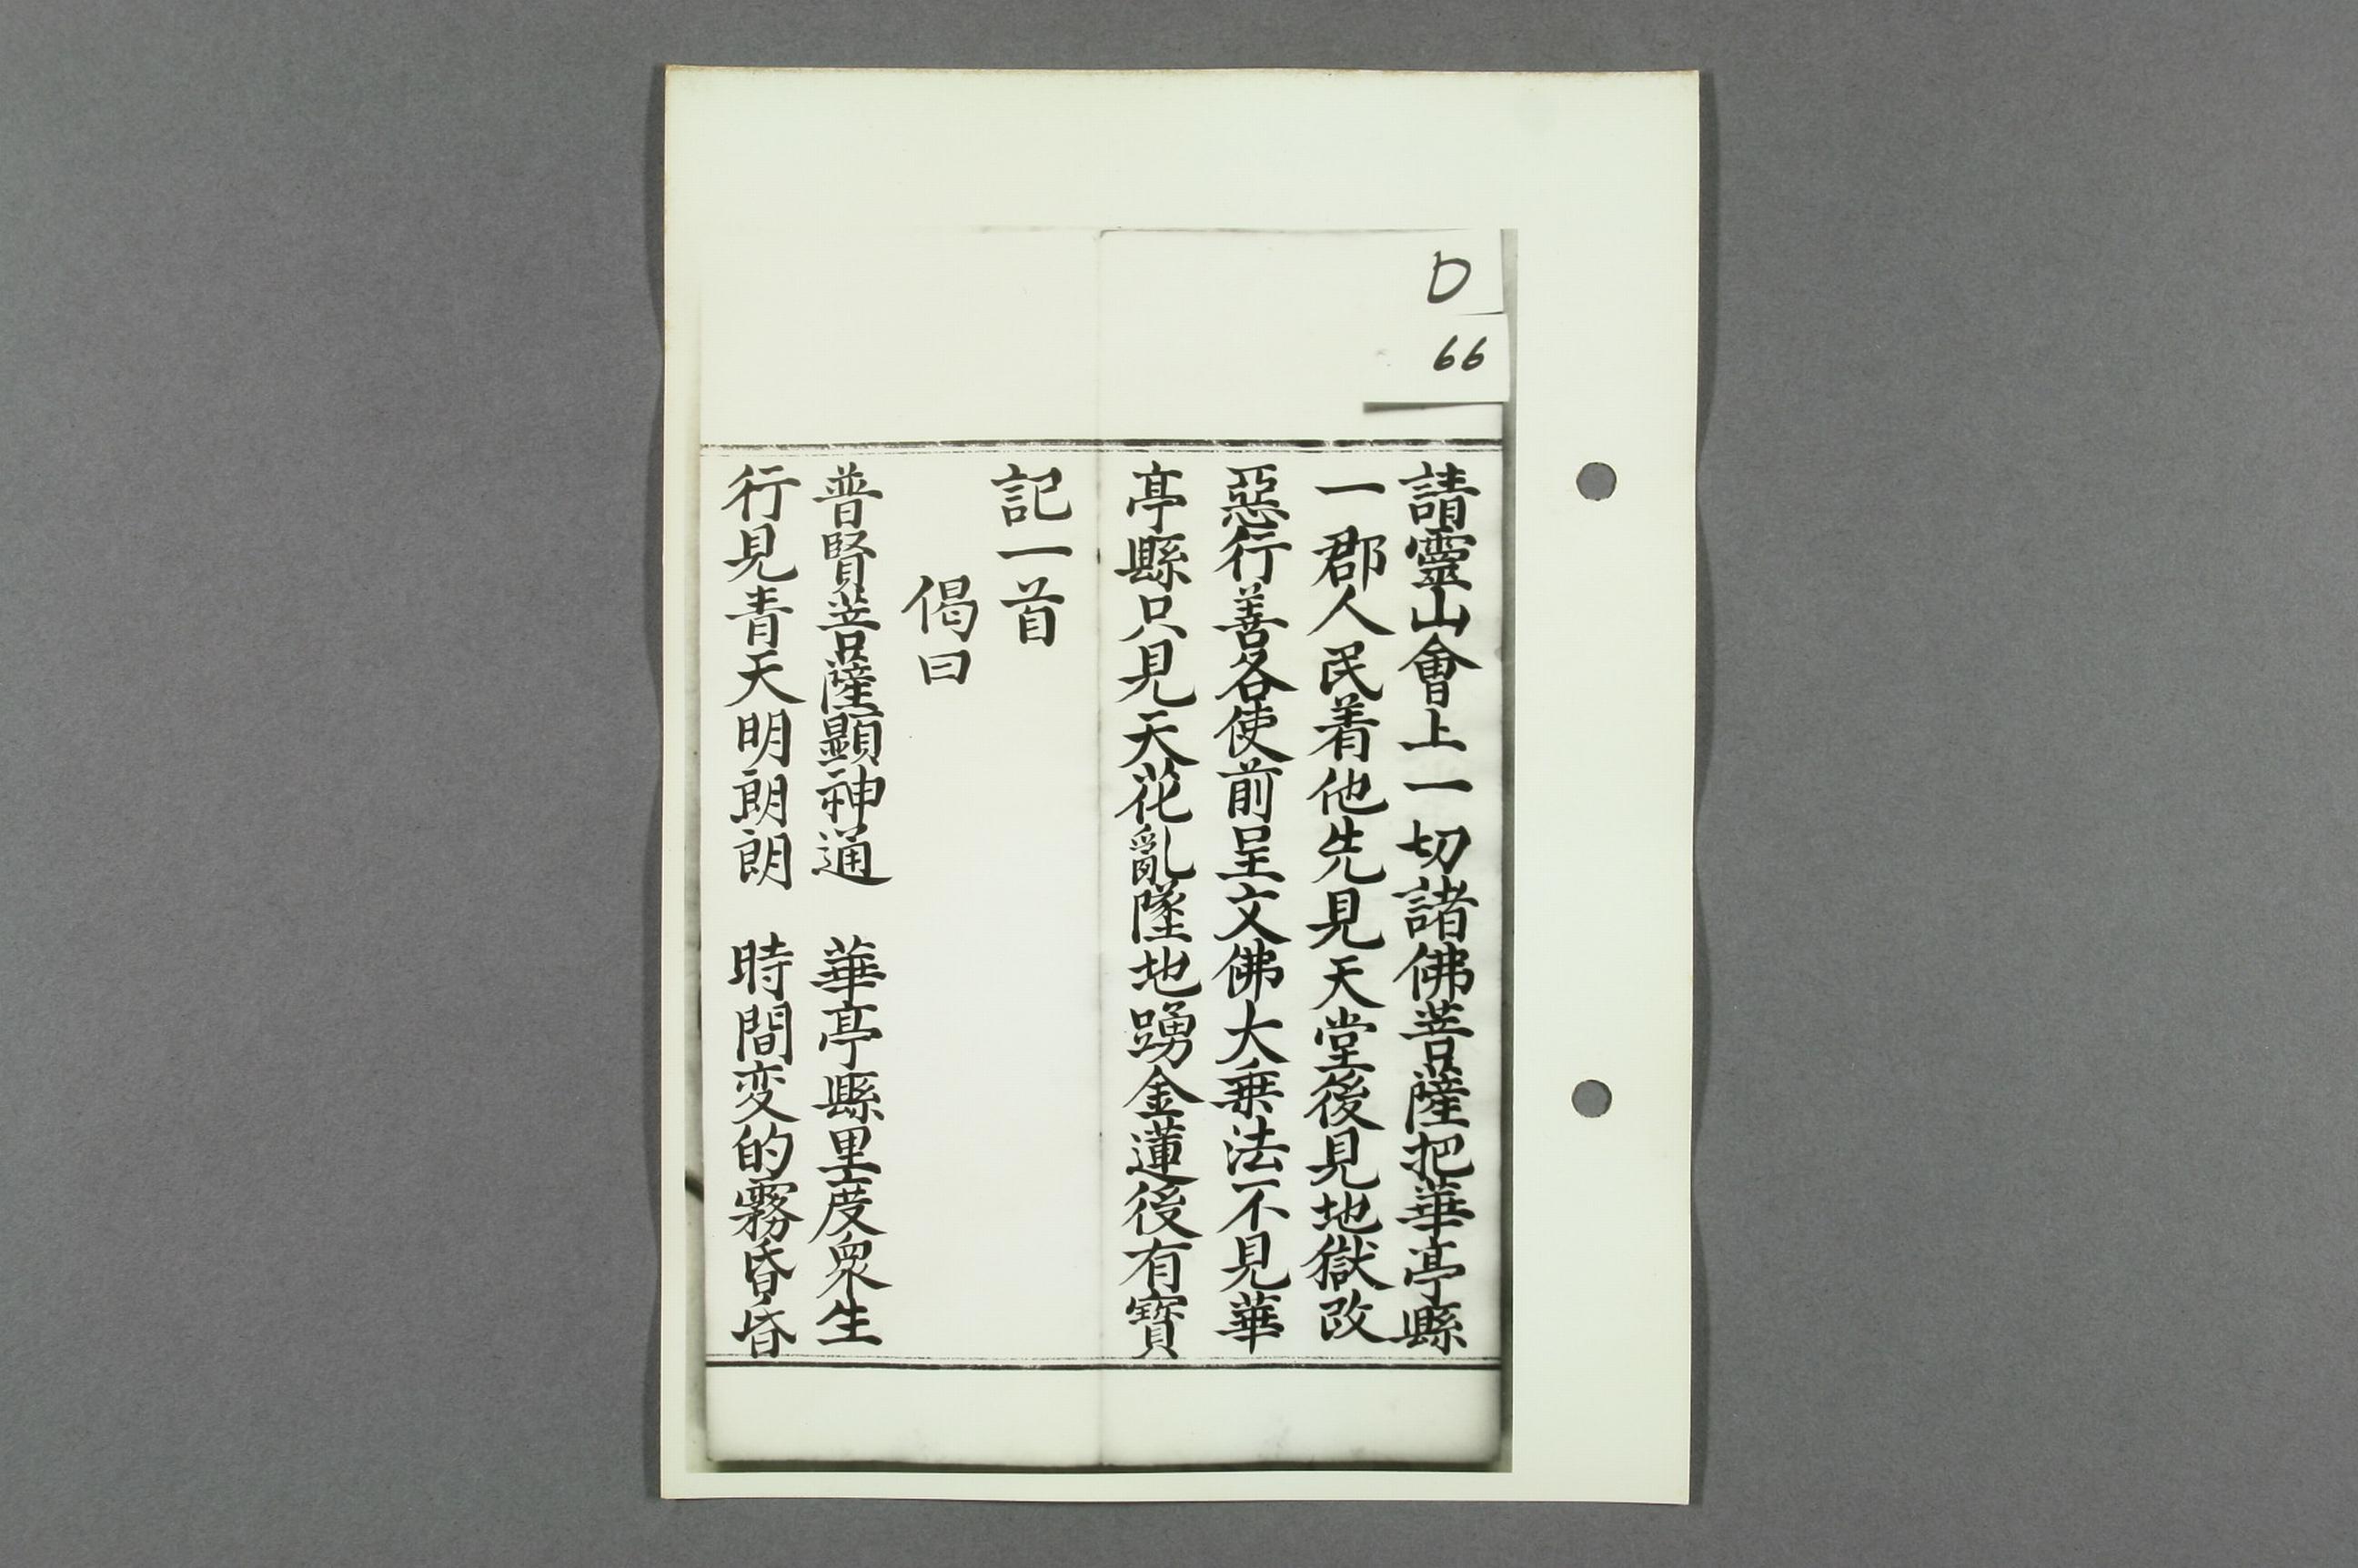 D
66
請靈山會上一切諸佛菩薩把華亭縣
一郡人民着他先見天堂後見地獄改
惡行善各使前呈文佛大乗法不見華
亭縣只見天花亂墜地踴金蓮後有寶
記一首
偈曰
普賢菩薩顯神通　華亭縣里度衆生
行見青天明朗朗　時間变的霧昏昏